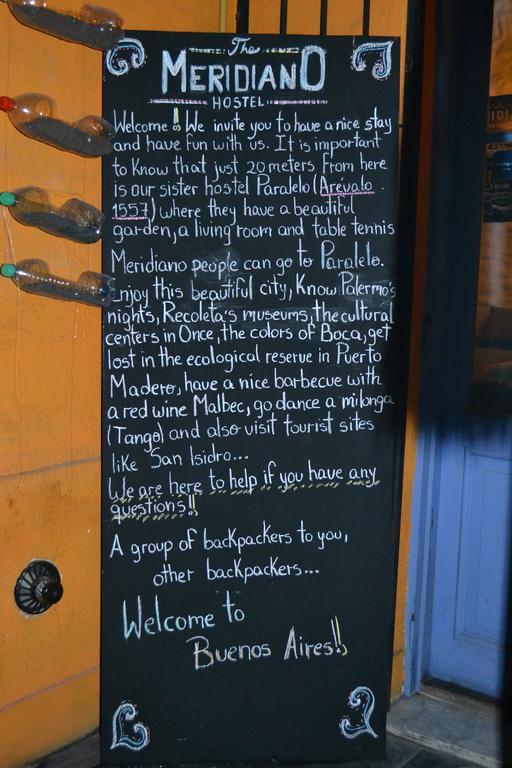 The
MERIDIANO
HOSTEL
Welcome! We invite you to have a nice stay
and have fun with us. It is important
to know that just 20 meters from here
is our sister hostel Paralelo (Arevalo
1557) where they have a beautiful
garden, a living room and table tennis
Meridiano people can go to Paralelo.
Enjoy this beautiful city, Know Palermo's
nights, Recoleta's museums, the cultural
centers in Once, the colors of Boca, get
lost in the ecological reserve in Puerto
Madero, have a nice barbecue with
a red wine Malbec, go dance a milonga
(Tango) and also visit tourist sites
like San Isidro...
We are here to help if you have any
questions!!
A group of backpackers to you,
other backpackers...
Welcome to
Buenos Aires!!